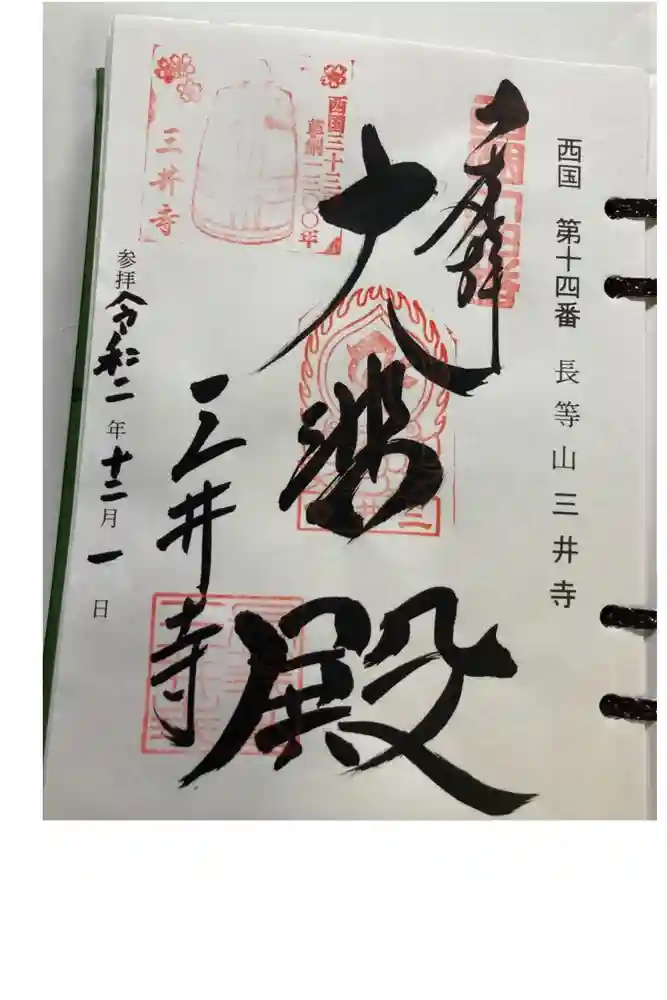 西国 第十四番 長等山三井寺
奉拝
大悲殿
三井寺
西国三十三
草創一三〇〇年
三井寺
参拝 令和二年十二月一日